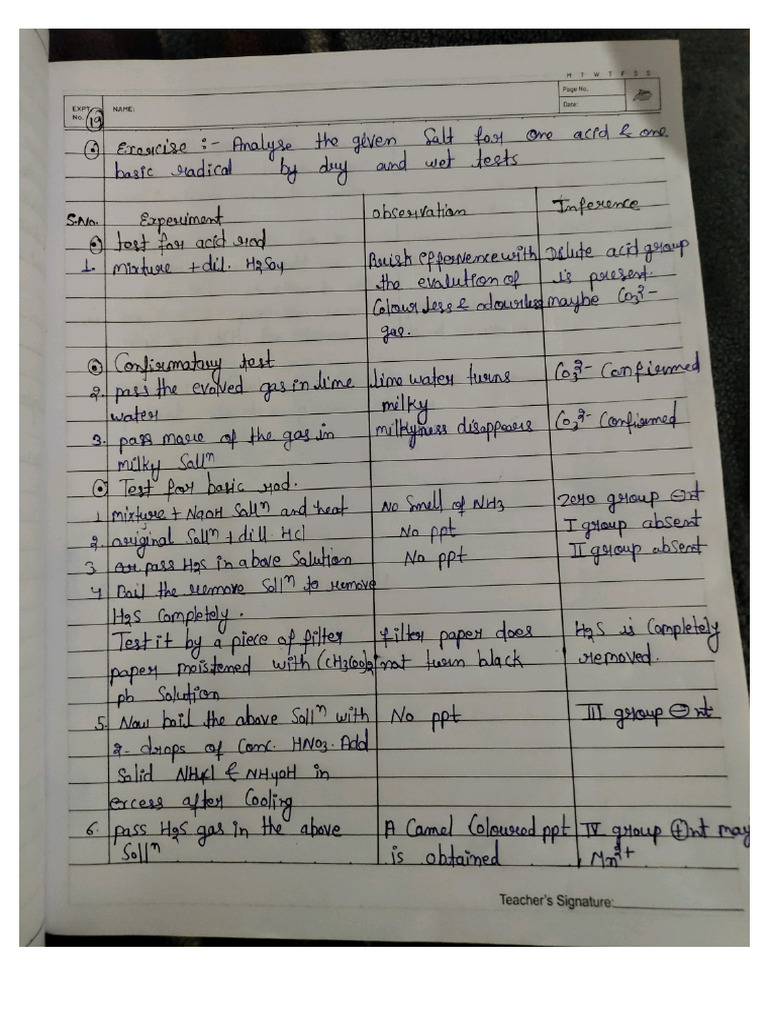 M T W T F S S
EXPT. No. 19 NAME: Page No.
Date:
Exercise :- Analyse the given Salt for one acid & one
basic radical by dry and wet tests
S.No. Experiment observation Inference
test for acid rad
1. mixture + dil. H2SO4 Brisk effervence with Dilute acid group
the evalution of is present.
Colourless & odourless maybe CO3²-
gas.
Confirmatory test
2. pass the evolved gas in lime lime water turns CO3²- Confirmed
water milky
3. pass more of the gas in milkyness disappears CO3²- Confirmed
milky Sollⁿ
Test for basic rad.
1. mixture + NaOH Sollⁿ and heat No Smell of NH3 Zero group ⊖nt
2. original Sollⁿ + dill. HCl No ppt I group absent
3. pass H2S in above Solution No ppt II group absent
4. Boil the remove Sollⁿ to remove
H2S Completely.
Test it by a piece of filter filter paper does H2S is Completely
paper moistened with (CH3COO)2 not turn black removed.
pb Solution
5. Now boil the above Sollⁿ with No ppt III group ⊖nt
2- drops of Conc. HNO3. Add
Solid NH4Cl & NH4OH in
excess after Cooling
6. pass H2S gas in the above A Camel Coloured ppt IV group ⊕nt may
Sollⁿ is obtained Mn²+
Teacher's Signature: